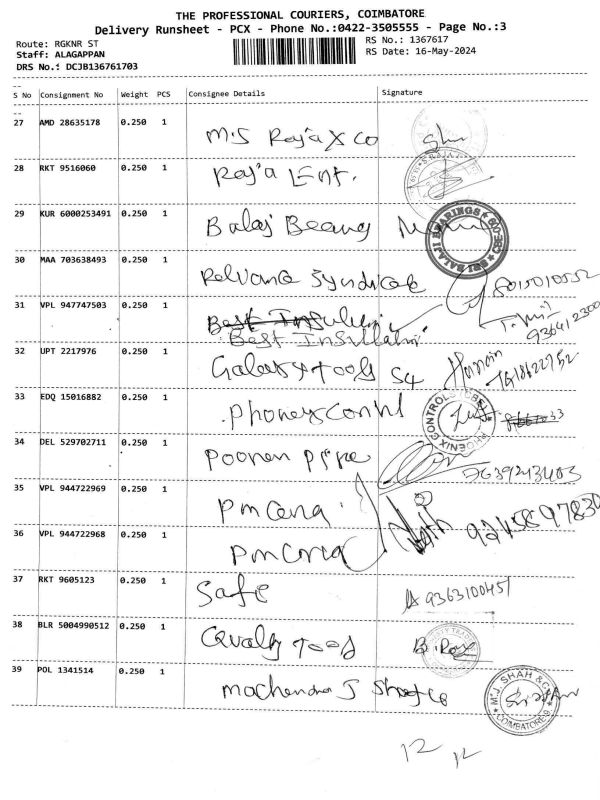 THE PROFESSIONAL COURIERS, COIMBATORE
Delivery Runsheet - PCX - Phone No.:0422-3505555 - Page No.:3
Route: RGKNR ST
RS No.: 1367617
Staff: ALAGAPPAN
RS Date: 16-May-2024
DRS No.: DCJB136761703
S No Consignment No Weight PCS Consignee Details Signature
27 AMD 28635178 0.250 1 M.S Raja X Co
28 RKT 9516060 0.250 1 Raja Ent.
29 KUR 6000253491 0.250 1 Balaj Bearing SRI BALAJI BEARINGS CBE
30 MAA 703638493 0.250 1 Reliance Syndicate 8015010552
31 VPL 947747503 0.250 1 Best Insullatir
32 UPT 2217976 0.250 1 Galaxy Tools S4
33 EDQ 15016882 0.250 1 Phonex Contrl PHOENIX CONTROLS
34 DEL 529702711 0.250 1 Poonam Pipe
35 VPL 944722969 0.250 1
36 VPL 944722968 0.250 1
37 RKT 9605123 0.250 1 Safe 9363100451
38 BLR 5004990512 0.250 1 Qualy Tools B. Roy
39 POL 1341514 0.250 1 Machendra J Shah Co M.J. SHAH & CO COIMBATORE
12 12